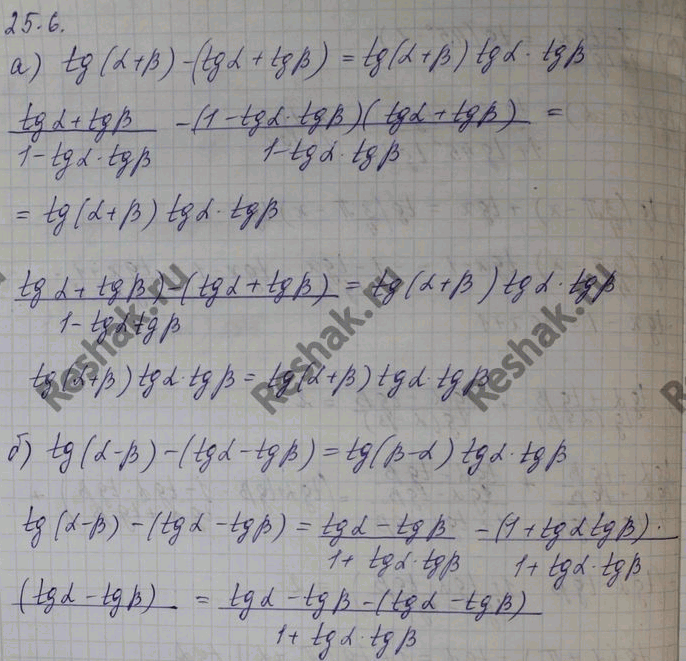 25.6.
а) tg(α+β)-(tgα+tgβ) = tg(α+β) tgα·tgβ
tgα+tgβ -(1-tgα·tgβ)(tgα+tgβ) =
1-tgα·tgβ 1-tgα·tgβ
= tg(α+β) tgα·tgβ
tgα+tgβ)-(tgα+tgβ) = tg(α+β) tgα·tgβ
1-tgαtgβ
tg(α+β) tgα·tgβ = tg(α+β) tgα·tgβ
б) tg(α-β)-(tgα-tgβ) = tg(β-α) tgα·tgβ
tg(α-β)-(tgα-tgβ) = tgα-tgβ -(1+tgαtgβ)·
1+tgα·tgβ 1+tgα·tgβ
(tgα-tgβ) = tgα-tgβ-(tgα-tgβ)
1+tgα·tgβ
Reshak.ru
Reshak.ru
Reshak.ru